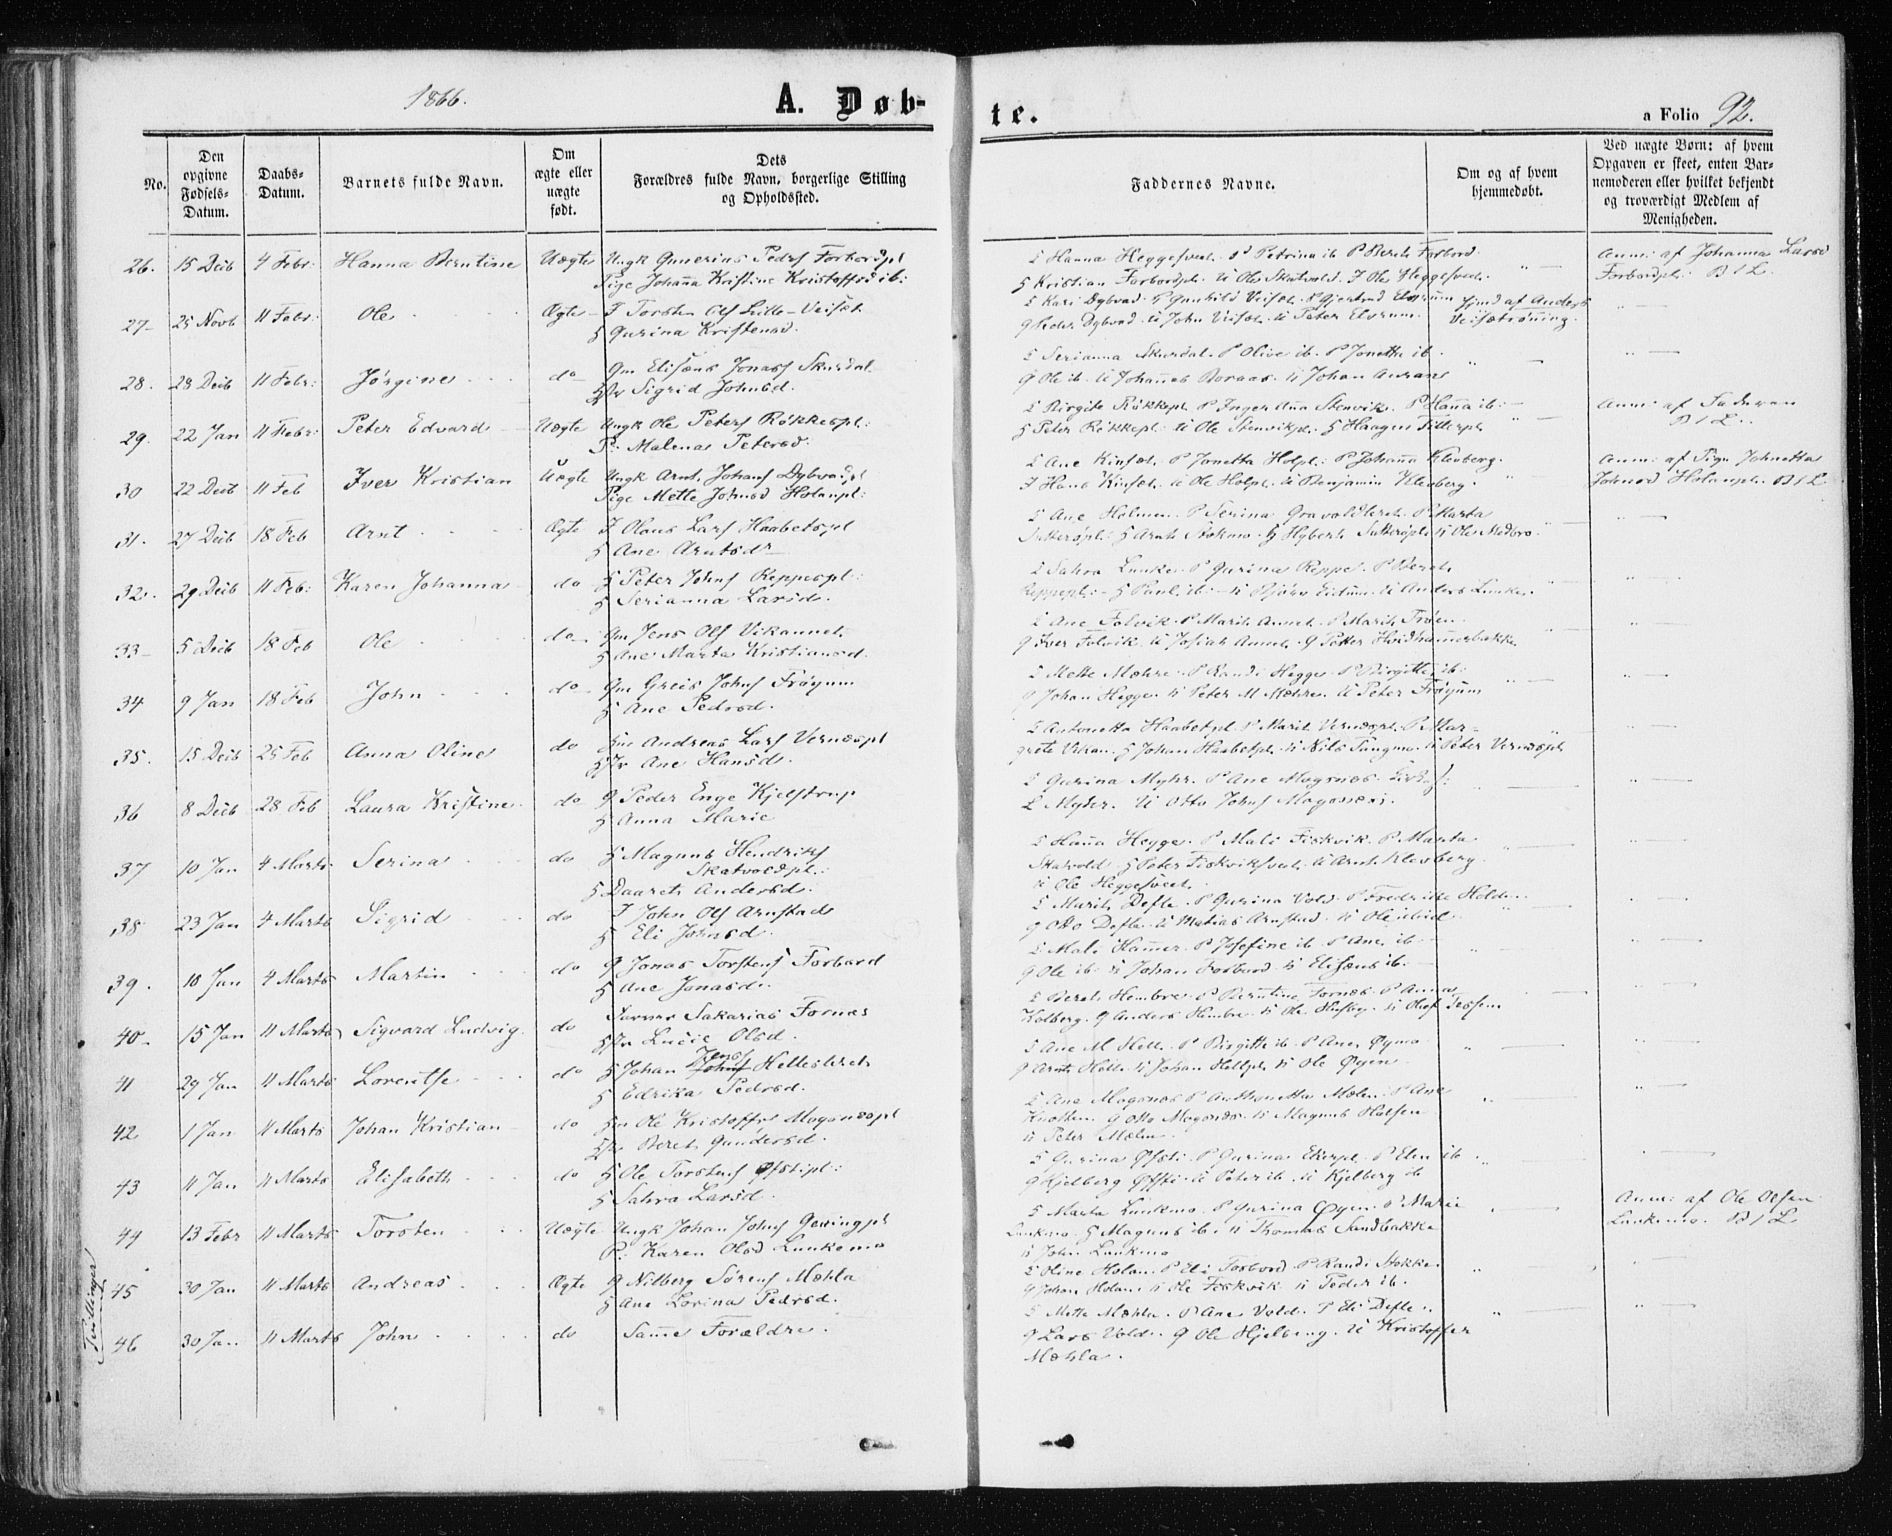 1866.
A. Døb-
te.
a Folio 92.
No.
Den opgivne Fødsels-Datum.
Daabs-Datum.
Barnets fulde Navn.
Om ægte eller uægte født.
Dets Forældres fulde Navn, borgerlige Stilling og Opholdssted.
Faddernes Navne.
Om og af hvem hjemmedøbt.
Ved uægte Børn: af hvem Opgaven er skeet, enten Barnemoderen eller hvilket bekjendt og troværdigt Medlem af Menigheden.
26. 15 Decb 4 Febr: Hanna Berntine Uægte Ungk Pedrs Forbordpl
Pige Johana Kristine Kristoffsd ib:
Hanna Heggesvedt. P Petrina ib P Beret Forbord
Kristian Forbordpl. U Ole Skatvold. Ole Heggesvedt.
Anm: af Johanna Larsd
Forbordpl: B 1 L.
27 25 Novb 11 Febr: Ole Ægte Torsten Ols Lille-Veiset
Gurina Kristensd.
Kari Dybvad P Gunhild Veiset P Gjertrud Elvrum
Peder Dybvad. U John Veiset. U Peter Elvrum.
hjmd af Anders
Veisetrøning.
28. 28 Decb 11 Febr: Jørgine do Gm Eliseus Jonass Skurdal
Sigrid Johnsd.
Serianna Skurdal. P Olive ib. P Jonetta ib.
G Ole ib. U Johannes Boraas. U Johan Auran
29. 22 Jan 11 Febr: Peter Edvard Uægte Ungk Ole Peters Røkkespl:
P: Malena Petersd.
Birgite Røkkepl. P Inger Ana Stenvik. P Hana ib:
Peter Røkkepl: U Ole Stenvikpl. Haagen
Anm: af Faderen
B 1 L.
30 22 Decb 11 Feb Iver Kristian Uægte Ungk Arnt Johans Dybvadpl
Pige Mette Johnsd Holanpl:
Ane Kinset. P Jonetta Holpl: P Johana Klevberg.
Hans Kinset. U Ole Holpl. U Benjamin Klevberg.
Anm: af Pige Johnetta
Johnsd Holanpl. B 1 L
31. 27 Decb 18 Feb Arnt Ægte Olaus Lars Haabetspl
Ane Arntsdr
Ane Holmen. P Serina P Marta
Arnt Stokmo. Hybert U Ole Medbro.
32. 29 Decb 11 Feb: Karen Johanna do Peter Johns Reppespl:
Serianna Larsd.
Sahra Lunke. P Gurina Reppe. P Beret
Reppepl: Paul ib: U Bjørn U Anders Lunken.
33 5 Decb 18 Feb Ole do Gm Jens Ols Vikannet.
Ane Marta Kristiansd.
Ane Folvik. P Marit Annet. P Marit Trøen.
G Iver Folvik. U Josiah Annet. G Petter Hvidhammerbakke
34 9 Jan 18 Feb John do Gm Greis Johns Frøyum
Ane Pedrsd.
Mette Mæhre. P Randi Hegge. P Birgitte ib:
Johan Hegge. U Peter M Mæhre. U Peter Frøyum
35. 15 Decb 25 Feb Anna Oline do Andreas Lars Vernæspl
Ane Hansd.
Antonetta Haabetpl. P Marit Vernæspl. P Mar-
grete Vikan. Johan Haabetpl. U Nils U Peter Vernæspl
36 8 Decb 28 Feb Laura Kristine do G Peder Enge Kjelstrup
Anna Marie
Gurina Myhr. P Ane Mogsnæs.
L Myhr. U Otto Johns Mogsnæs.
37 10 Jan 4 Marts Serina do Magnus Hendriks
Skatvoldpl.:
Daaret Andersd.
Hana Hegge. P Mali Fiskvik. P Marta
Skatvold. Peter Fiskviksvedt. U Arnt Klevberg.
U Ole Heggesvedt.
38 23 Jan 4 Marts Sigrid do John Ols Arnstad
Eli Johnsd.
Marit Defle. P Gurina Vold. P Fredrikke Holde
G Otto Defle. U Matias Arnstad. U Ole ibid.
39. 10 Jan 4 Marts Martin do G Jonas Torstens Forbord
Ane Jonasd.
Mali Hamer. P Josefine ib P Ane ib:
G Ole ib. U Johan Forbord. U Eliseus ib.
40. 15 Jan 11 Marts Sigvard Ludvig. do Sakarias Fornæs
Lucie Olsd.
Beret Hembre. P Berntine Fornæs. P Anna
Kolberg. G Anders Hembre. U Ole Husby. U Olof Jessen
41 29 Jan 11 Marts Lorentse do Johan Jens Hellesteret
Edrika Pedrsd.
Ane M Hell. P Birgitte ib P Ane Øymo
G Arnt Hell. U Johan Hellpl. U Ole Øyen
42 1 Jan 11 Marts Johan Kristian do Ole Kristoffrs Mogsnæspl
Beret Gundersd.
Ane Mogsnæs P Anthonetta Mælen. P Ane
Knotten. G Otto Mogsnæs. U Magnus Halsen
U Peter Mælen.
43 11 Jan 11 Marts Elisabeth do Ole Torstens Øfstipl:
Sahra Larsd.
Gurina Øfsti. P Gurina Ekerpl. P Elen ib.
G Kjelberg Øfsti. U Peter ib. U Kjelberg ib
44 13 Febr 11 Marts Torsten Uægte Ungk Johan Johns Gevingpl
P: Karen Olsd Lunkemo
Marta Lunkmo. P Gurina Øyen. P Marie
Lunkmo. Magnus ib. U Thomas Sandbakke
U John Lunkmo
Anm: af Ole Olsen
Lunkmo. B 1 L
Tvillinger
45 30 Jan 11 Marts Andreas Ægte G Nilberg Sørens Mæhla
Ane Lorina Pedrsd.
Oline Holan. P Eli Forbord. P Randi Stokke.
G Johan Holan. U Ole Fiskvik. U Peder ib.
46 30 Jan 11 Marts John do Same Forældre.
Mette Mæhla. P Ane Vold. P Eli Defle.
G Lars Vold. G Ole Hjelberg. U Kristoffer
Mæhla.